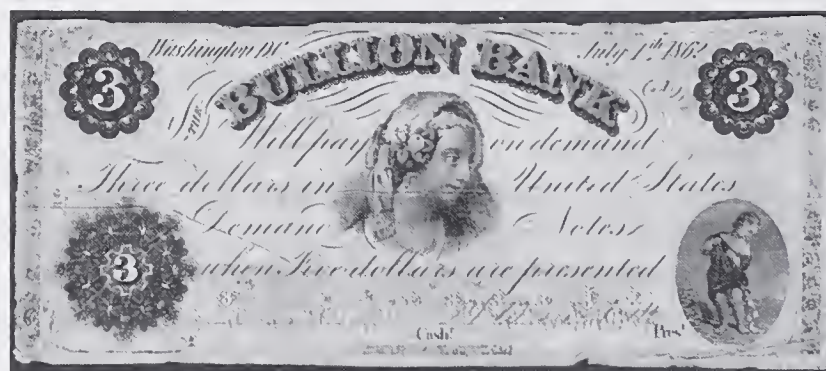 Washington DC July 1th 1862
3 THE BULLION BANK 3
Will pay on demand
Three dollars in United States
Demand Notes
3 when Five dollars are presented
Cashr Prest